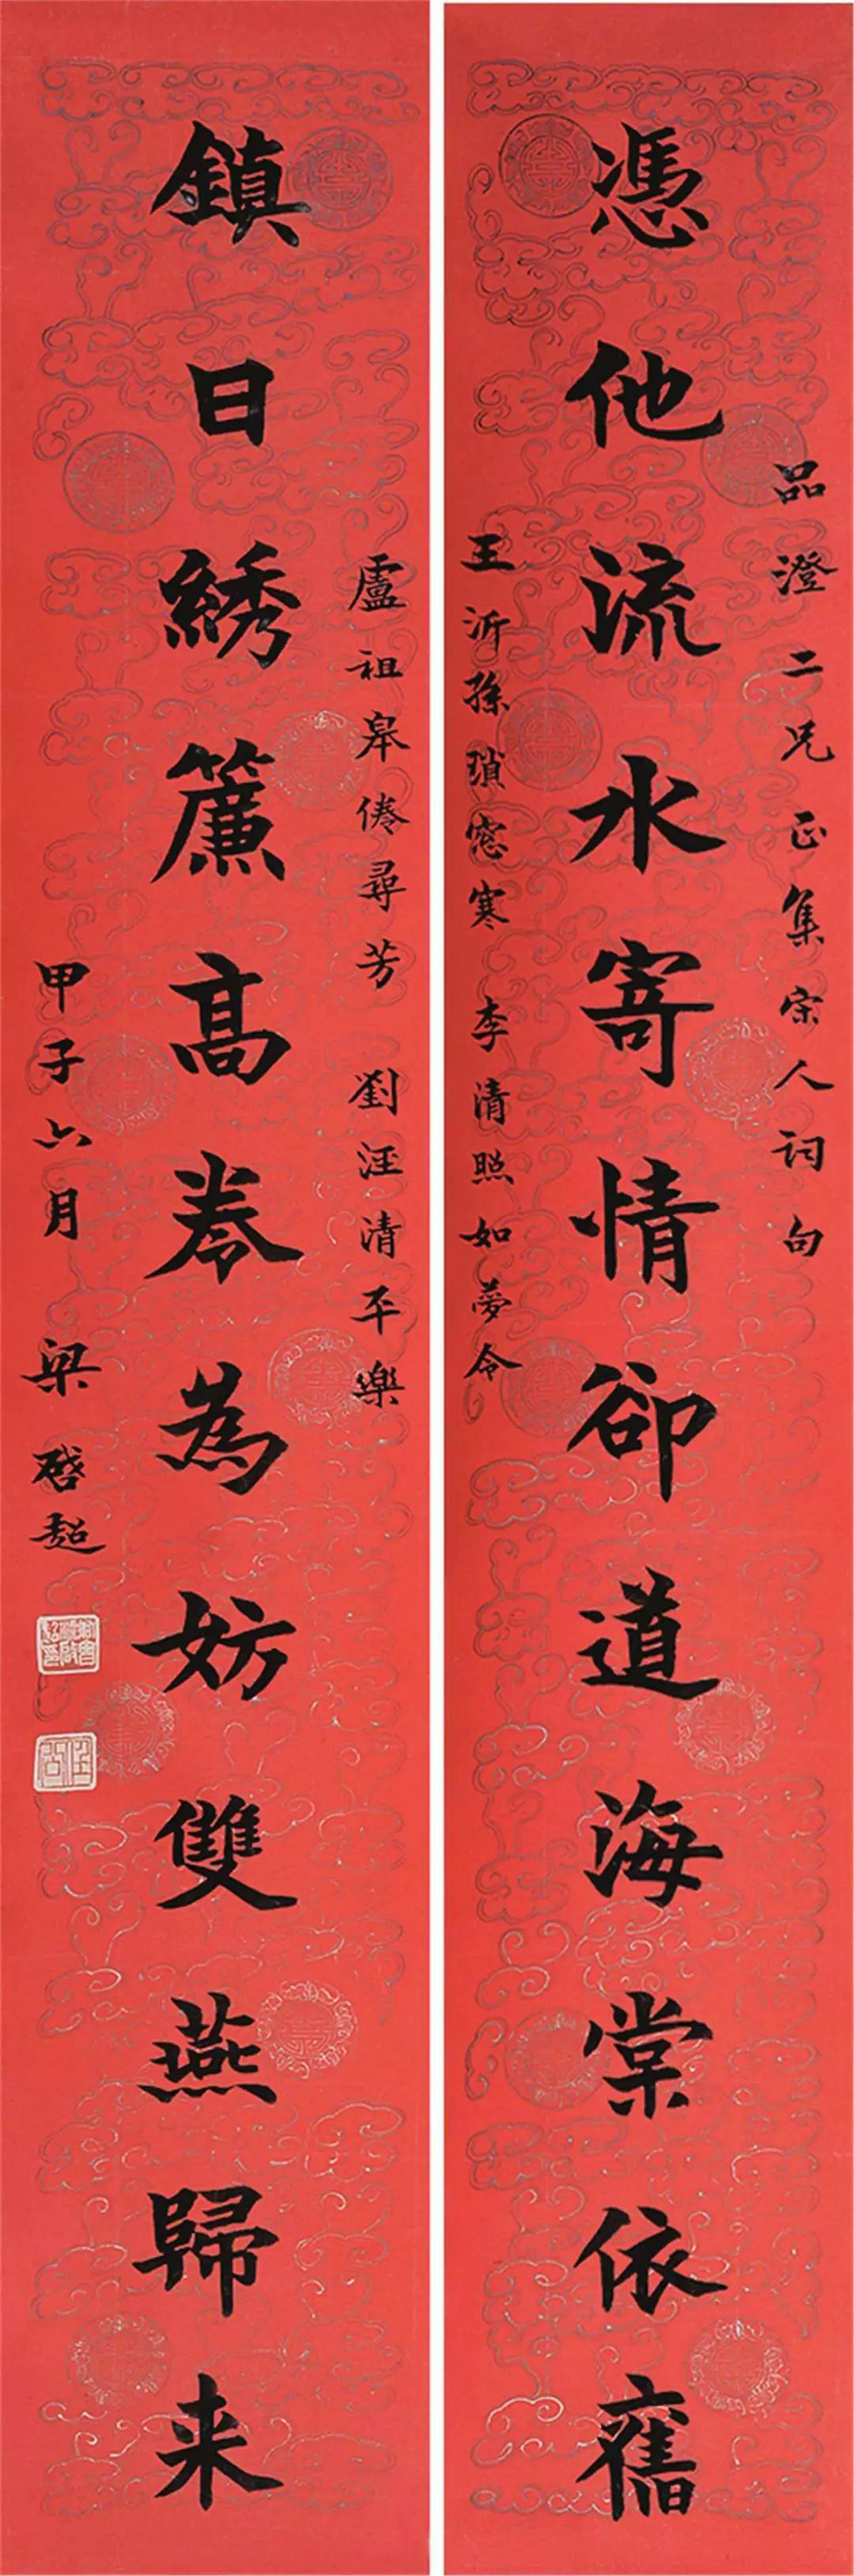 品澄二兄正集宋人詞句
憑他流水寄情卻道海棠依舊
王沂孫瑣窓寒 李清照如夢令
盧祖皋倦尋芳 劉汪清平樂
鎮日綉簾高卷為妨雙燕歸来
甲子六月 梁啓超